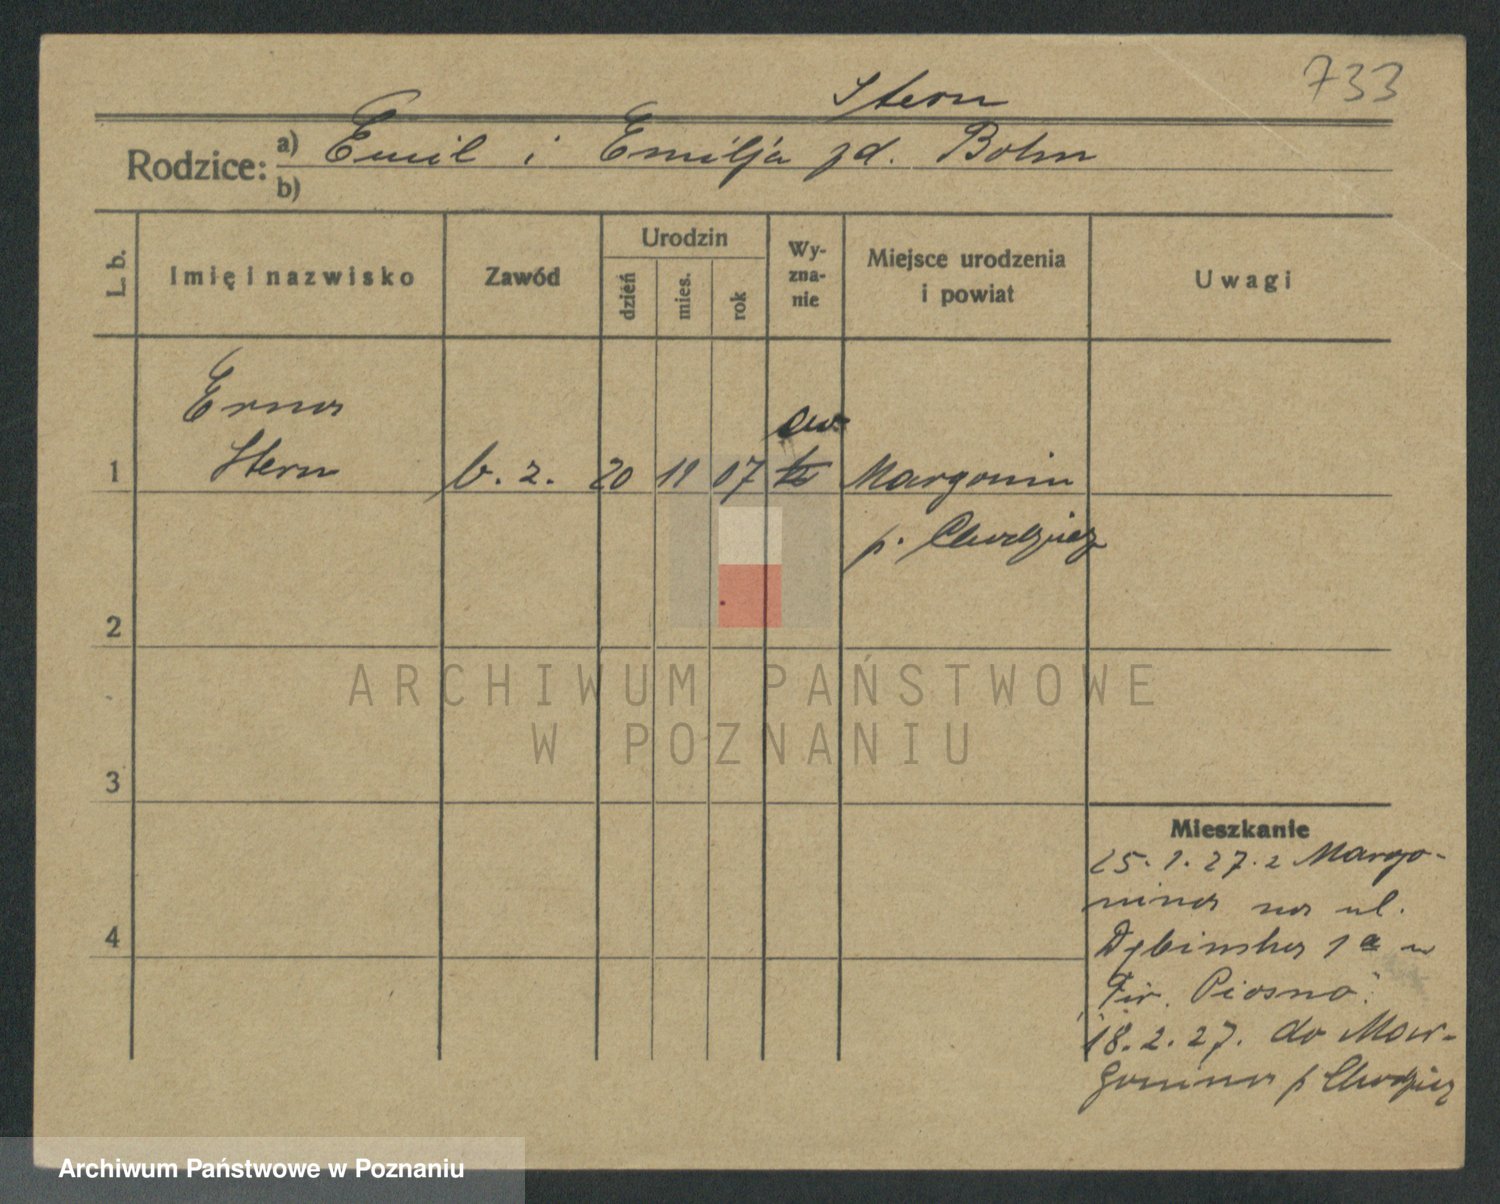 733
Stern
Rodzice: a) Emil i Emilja zd. Bohm
b)
L. b.
Imię i nazwisko
Zawód
Urodzin
dzień
mies.
rok
Wy-
zna-
nie
Miejsce urodzenia
i powiat
Uwagi
Erna
ew.
1 Stern b. z. 20 11 07 Margonin
p. Chodzież
2
ARCHIWUM PAŃSTWOWE
W POZNANIU
3
Mieszkanie
25. 1. 27. z Margo-
nina na ul.
4 Dębinska 1a u
Fir. Piosna
18. 2. 27. do Mar-
gonina p Chodzież
Archiwum Państwowe w Poznaniu